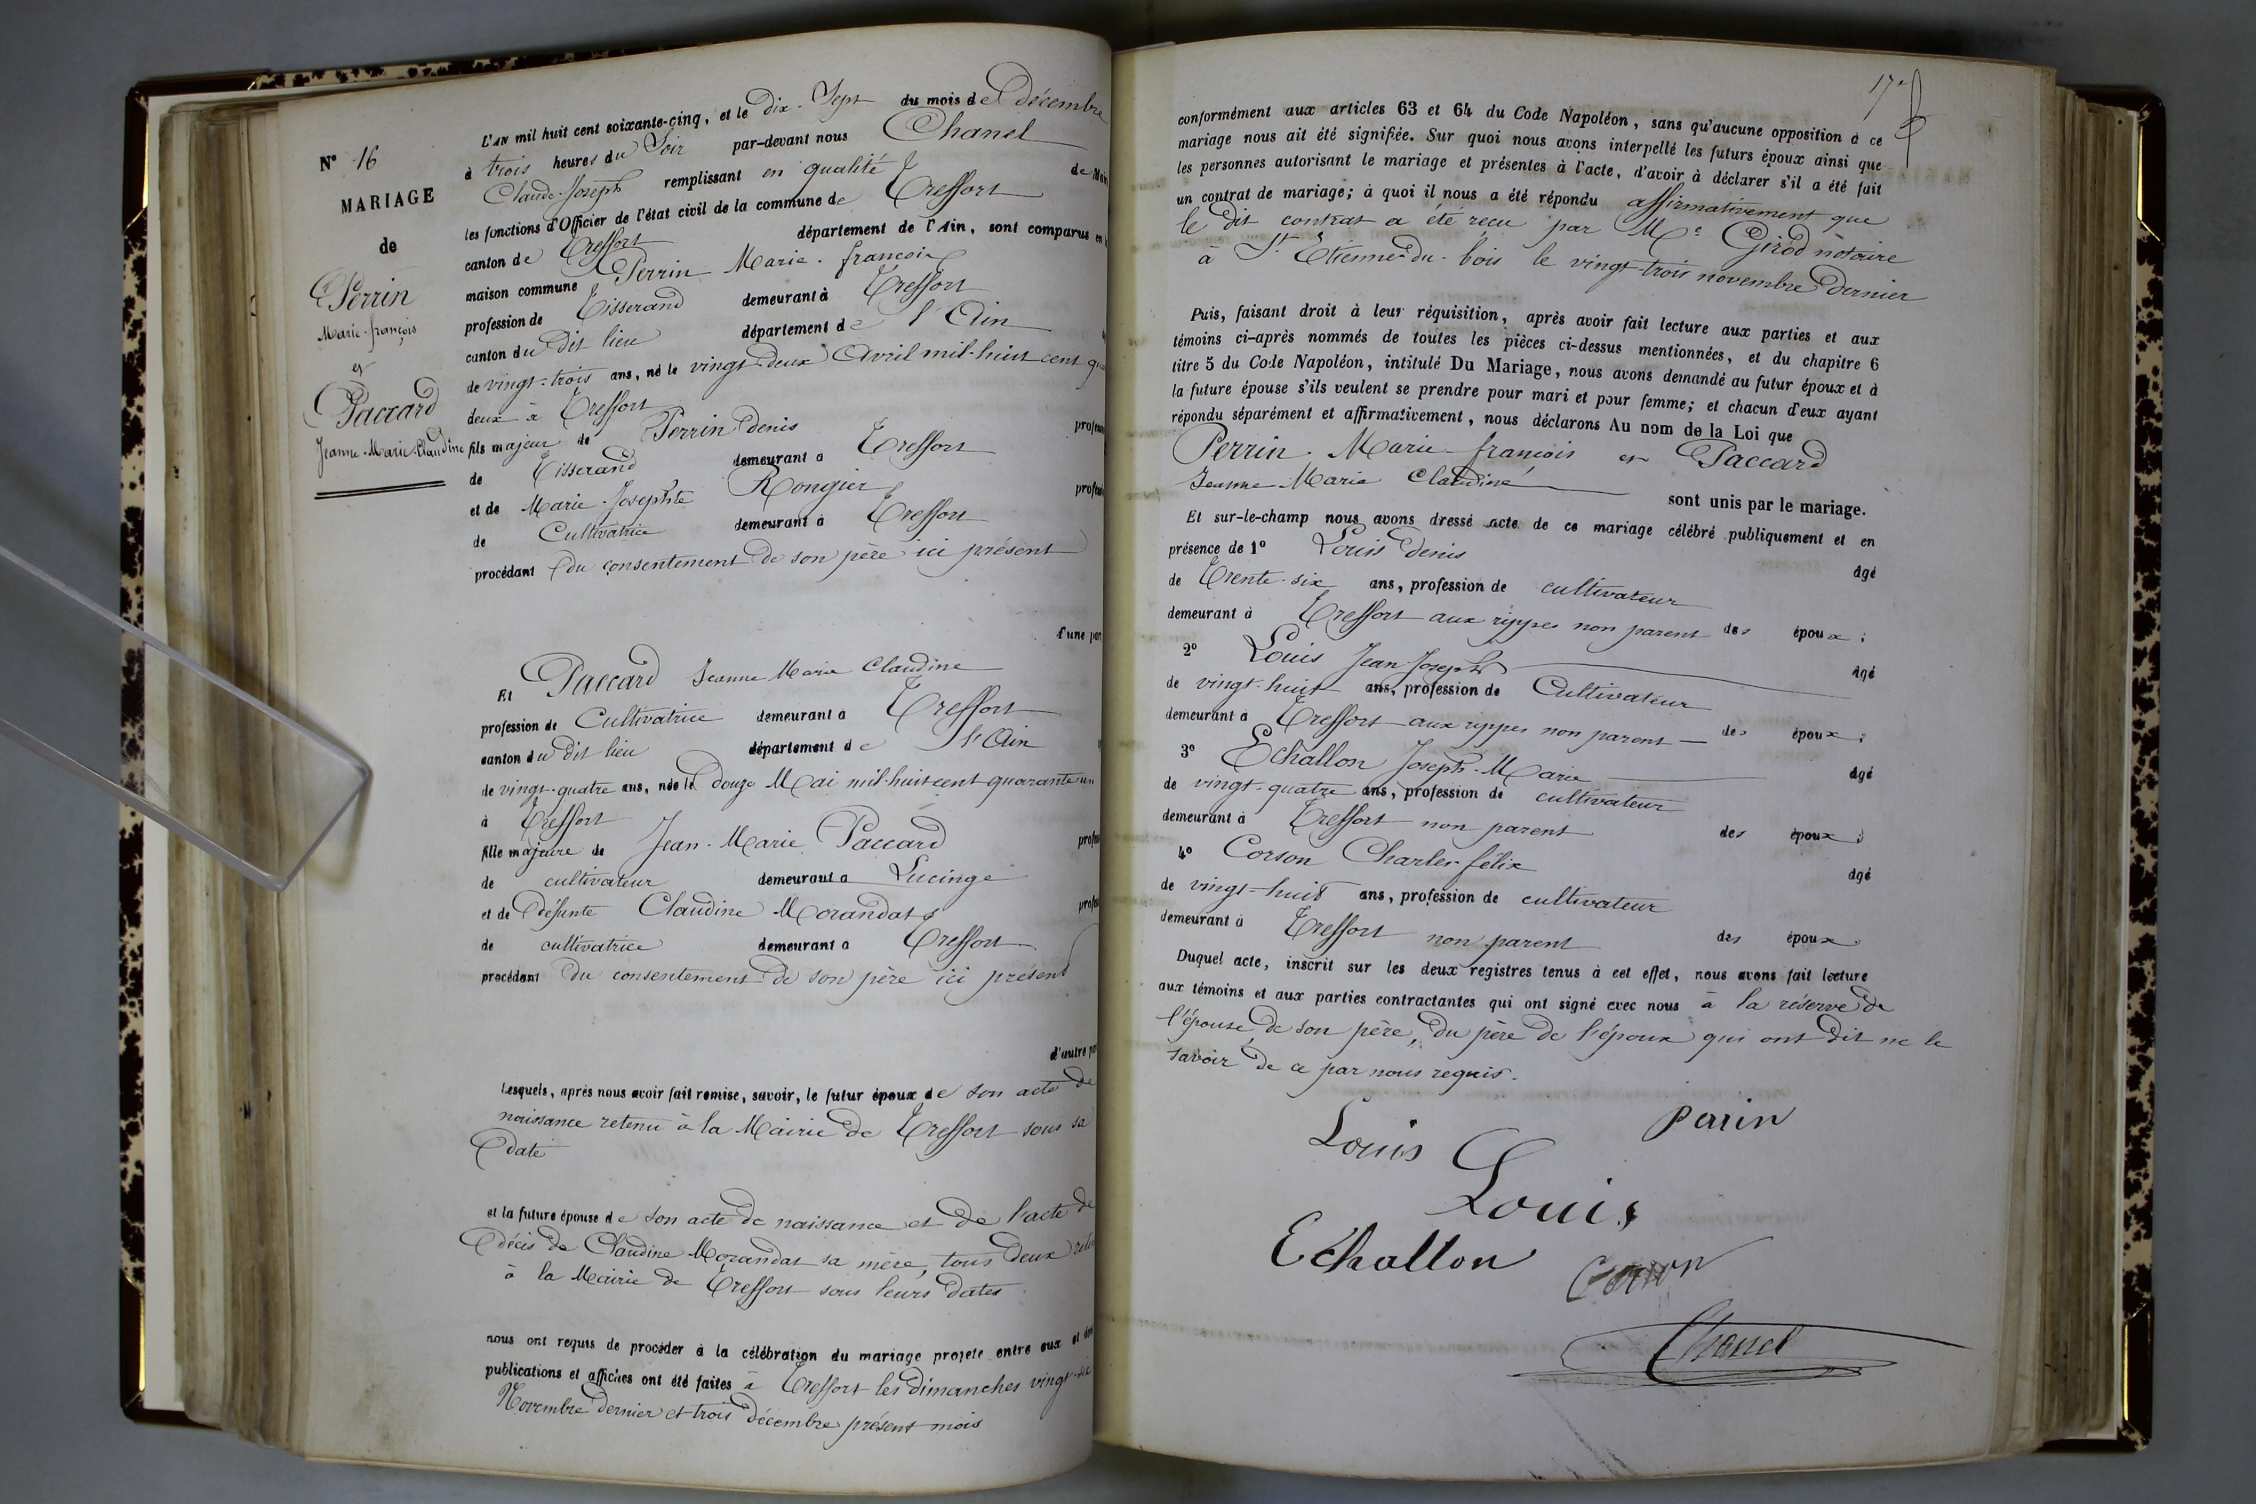 N° 16
MARIAGE
de
Perrin
Marie-françois
et
Paccard
Jeanne-Marie-Claudine
L'AN mil huit cent soixante-cinq, et le dix-Sept du mois de décembre
à trois heures du Soir par-devant nous Chanel
Claude-Joseph remplissant en qualité de
les fonctions d'Officier de l'état civil de la commune de Treffort
canton de Treffort département de l'Ain, sont comparus en
maison commune Perrin Marie-francois
profession de Tisserand demeurant à Treffort
canton du dit lieu département de l'Ain
de vingt-trois ans, né le vingt-deux Avril mil-huit cent
deux à Treffort
fils majeur de Perrin denis
de Tisserand demeurant à Treffort
et de Marie-Josephte Rongier
de Cultivatrice demeurant à Treffort
procédant du consentement de son père ici présent
d'une
Et Paccard Jeanne Marie Claudine
profession de Cultivatrice demeurant à Treffort
canton du dit lieu département de l'Ain
de vingt-quatre ans, née le douze Mai mil-huit cent quarante un
à Treffort
fille majeure de Jean-Marie Paccard
de cultivateur demeurant à Lucinge
et de défunte Claudine Morandat
de cultivatrice demeurant à Treffort
procédant du consentement de son père ici présent
d'autre
Lesquels, après nous avoir fait remise, savoir, le futur époux de son acte de
naissance retenu à la Mairie de Treffort sous sa
date
et la future épouse de son acte de naissance et de l'acte de
décès de Claudine Morandat sa mère, tous deux
à la Mairie de Treffort sous leurs dates
nous ont requis de procéder à la célébration du mariage projeté entre eux et
publications et affiches ont été faites à Treffort les dimanches vingt-six
Novembre dernier et trois décembre présent mois
conformément aux articles 63 et 64 du Code Napoléon, sans qu'aucune opposition à ce
mariage nous ait été signifiée. Sur quoi nous avons interpellé les futurs époux ainsi que
les personnes autorisant le mariage et présentes à l'acte, d'avoir à déclarer s'il a été fait
un contrat de mariage; à quoi il nous a été répondu affirmativement que
le dit contrat a été reçu par Me Girod notaire
à St Etienne-du-bois le vingt-trois novembre dernier
Puis, faisant droit à leur réquisition, après avoir fait lecture aux parties et aux
témoins ci-après nommés de toutes les pièces ci-dessus mentionnées, et du chapitre 6
titre 5 du Code Napoléon, intitulé Du Mariage, nous avons demandé au futur époux et à
la future épouse s'ils veulent se prendre pour mari et pour femme; et chacun d'eux ayant
répondu séparément et affirmativement, nous déclarons Au nom de la Loi que
Perrin Marie-francois et Paccard
Jeanne-Marie Claudine sont unis par le mariage.
Et sur-le-champ nous avons dressé acte de ce mariage célébré publiquement et en
présence de 1° Louis denis âgé
de trente-six ans, profession de cultivateur
demeurant à Treffort aux rippes non parent des époux;
2° Louis Jean-Joseph âgé
de vingt-huit ans, profession de Cultivateur
demeurant à Treffort aux rippes non parent des époux;
3° Echallon Joseph-Marie âgé
de vingt-quatre ans, profession de cultivateur
demeurant à Treffort non parent des époux;
4° Corson Charles-félix âgé
de vingt-huit ans, profession de cultivateur
demeurant à Treffort non parent des époux
Duquel acte, inscrit sur les deux registres tenus à cet effet, nous avons fait lecture
aux témoins et aux parties contractantes qui ont signé avec nous à la réserve de
l'épouse, de son père, du père de l'époux qui ont dit ne le
savoir de ce par nous requis.
perrin
Louis
Louis
Echallon
Corson
Chanel